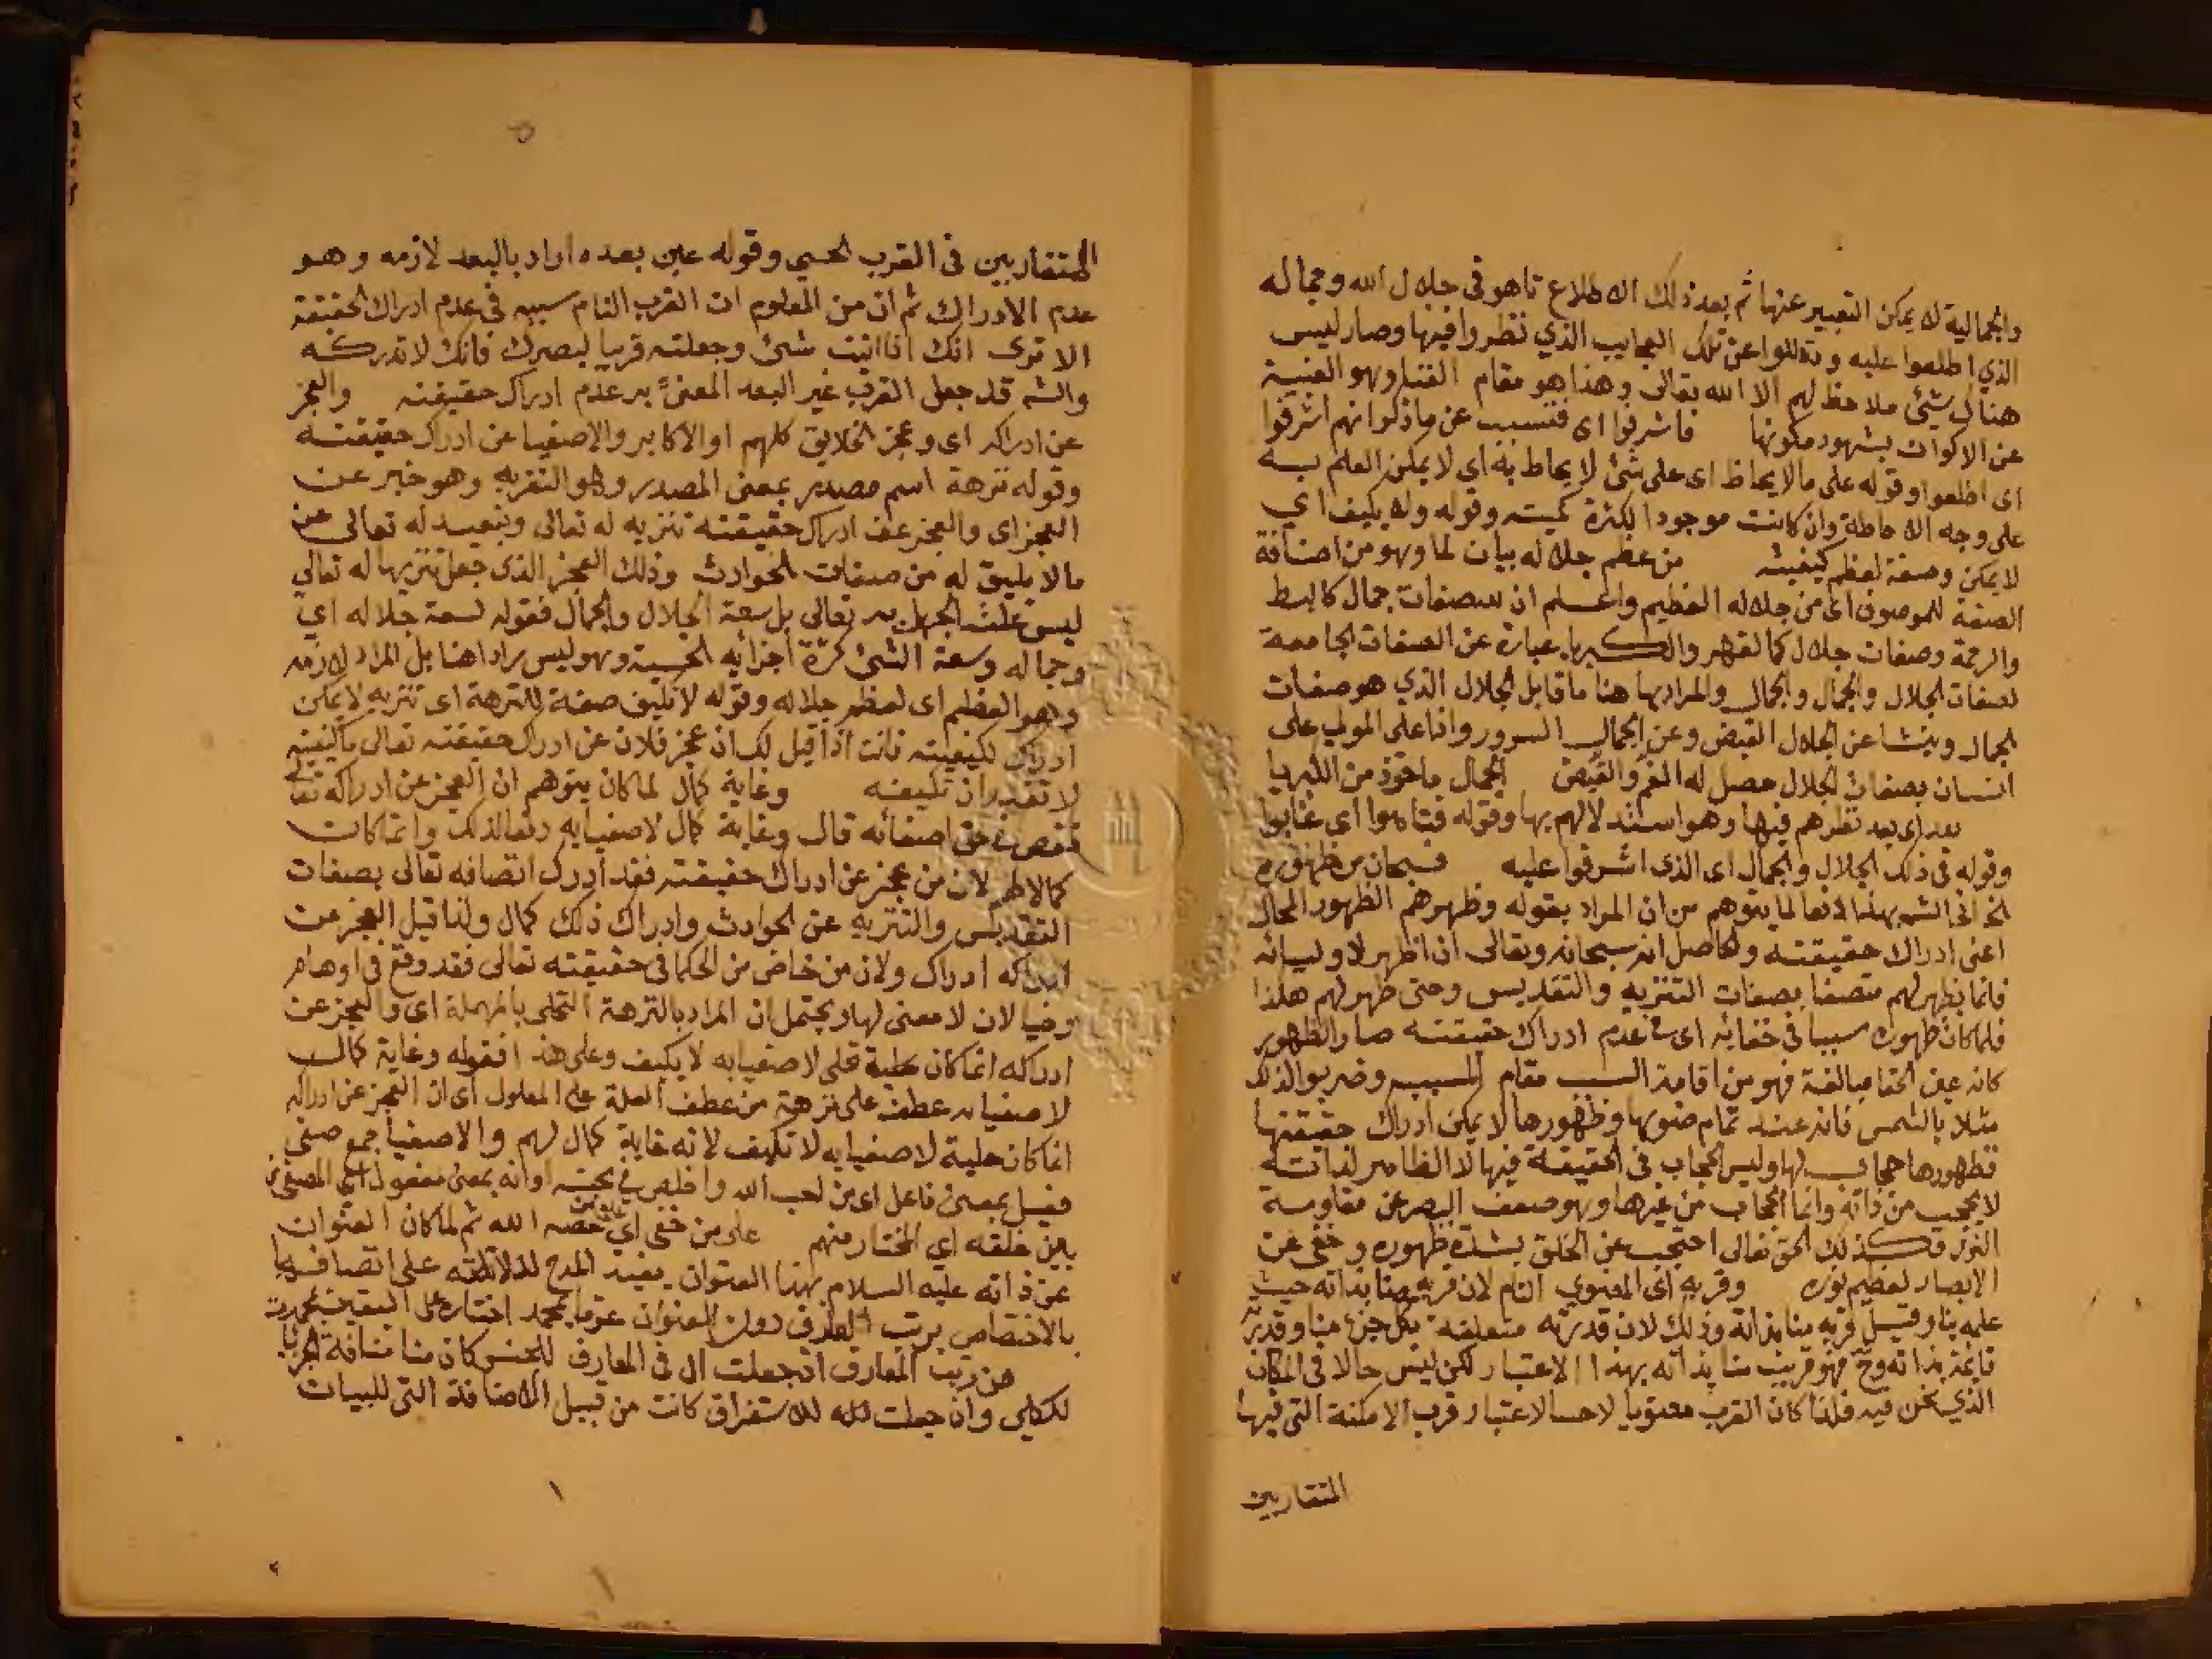 والجمالية لا يمكن التعبير عنها ثم بعد ذلك الاطلاع تاهو في جلال الله وجماله
الذي اطلعوا عليه و عن تلك العجايب الذي نظروا فيها وصار ليس
هناك شئ ملاحظ لهم الا الله تعالى وهذا هو مقام الفنا وهو الغيبة
عن الاكوان بشهود مكونها فاشرفوا اى فتسبب عن ما ذكر انهم اشرفوا
اى اطلعوا وقوله على ما لا يحاط اى على شئ لا يحاط به اى لا يمكن العلم به
على وجه الاحاطة وان كانت موجودا لكثرة كميته وقوله ولا يكيف اي
لا يمكن وصفه لعظم كيفيته من عظم جلاله بيان لما وهو من اضافة
الصفة للموصوف اى من جلاله العظيم واعلم ان لله صفات جمال كالبسط
والرحمة وصفات جلال كالقهر والكبريا عبارة عن الصفات الجامعة
لصفات الجلال والجمال والجمال والمراد بها هنا ما قابل الجلال الذي هو صفات
الجمال وينشا عن الجلال القبض وعن الجمال السرور واذا على المولى على
انسان بصفات الجلال حصل له الغم والقبض الجمال ماخوذ من الكبريا
بعد اى بعد نظرهم فيها وهو استدلالهم بها وقوله فتاهوا اى غابوا
وقوله في ذلك الجلال والجمال اى الذي اشرفوا عليه فسبحان من ظهوره
الخ اتى الشه بهذا دفعا لما يتوهم من ان المراد بقوله وظهرهم الظهور المحال
اعنى ادراك حقيقته والحاصل انه سبحانه وتعالى ان اظهر لاوليائه
فانما يظهر لهم متصفا بصفات التنزيه والتقديس وحتى ظهر لهم هكذا
فلما كان ظهوره سببا في خفائه اى في عدم ادراك حقيقته صار الظهور
كانه عين الخفا مبالغة فهو من اقامة السبب مقام المسبب وضربوا لذلك
مثلا بالشمس فانه عند تمام ضوئها وظهورها لا يمكن ادراك حقيقتها
فظهورها حجاب لها وليس الحجاب في الحقيقة فيها لا الظاهر لذاته
لا يحجب من ذاته وانما الحجاب من غيرها وهو ضعف البصر عن مقاومة
النور فكذلك الحق تعالى احتجب عن الخلق بشدة ظهوره وخفى عن
الابصار لعظيم نوره وقربه اى المعنوي التام لان قربه منا بذاته حيث
علمه بنا وقيل قربه منا بذاته وذلك لان قدرته متعلقة بكل جزء منا وقدرته
قائمة بذاته وح فهو قريب منا بذاته بهذا الاعتبار لكن ليس حالا في المكان
الذي نحن فيه فلما كان القرب معنويا لا حسا لاعتبار قرب الامكنة التي فيها
المتقاربين
المتقاربين في القرب الحسي وقوله عين بعده اراد بالبعد لازمه وهو
عدم الادراك ثم ان من المعلوم ان القرب التام سبب في عدم ادراك الحقيقة
الا ترى انك اذا اتيت شئ وجعلته قريبا لبصرك فانك لا تدركه
والشه قد جعل القرب غير البعد المعنى به عدم ادراك حقيقته والعجز
عن ادراكه اى وعجز الخلايق كلهم او الاكابر والاصفيا عن ادراك حقيقته
وقوله نزهة اسم مصدر بمعنى المصدر وهو التنزيه وهو خبر عن
العجز اى والعجز عن ادراك حقيقته تنزيه له تعالى وتبعيد له تعالى عن
ما لا يليق له من صفات الحوادث وذلك العجز الذي جعل تنزيها له تعالى
ليس علته الجهل به تعالى بل سعة الجلال والجمال فقوله لسعة جلاله اى
وجماله وسعة الشئ كثرة اجزائه الحسية وهو ليس مرادا هنا بل المراد لازمه
وهو العظم اى لعظم جلاله وقوله لا تكيف صفة للنزهة اى تنزيه لا يمكن
ادراك لكيفيته فانت اذا قيل لك ان عجز فلان عن ادراك حقيقته تعالى ما كيفيته
لا تقدر ان تكيفه وغاية كمال لما كان يتوهم ان العجز عن ادراكه تعالى
نقص في حق اصفائه قال وغاية كمال لاصفيايه دفعا لذلك وانما كان
كمالا لهم لان من عجز عن ادراك حقيقته فقد ادرك اتصافه تعالى بصفات
التقديس والتنزيه عن الحوادث وادراك ذلك كمال ولذا قيل العجز عن
ادراكه ادراك ولان من خاض من الحكما في حقيقته تعالى فقد وقع في اوهام
وخيالات لا معنى لها ويحتمل ان المراد بالنزهة التحلى بالمهملة اى والعجز عن
ادراكه انما كان حلية فلى لاصفيايه لا يكيف وعلى هذا فقوله وغاية كمال
لاصفيايه عطف على نزهة من عطف العلة على المعلول اى ان العجز عن ادراكه
انما كان حلية لاصفيايه لا تكيف لانه غاية كمال لهم والاصفيا جمع صفى
فعيل بمعنى فاعل اى من احب الله واخلص في محبته او انه بمعنى مفعول اى المصفى
بين خلقه اي المختار منهم على من خص اى خصه الله ثم لما كان العنوان
عن ذاته عليه السلام بهذا العنوان يفيد المدح لدلالته على اتصافه بها
بالاختصاص برتب المعارف دون العنوان عنها بمحمد اختاره على التعبير بمحمد
من رتب المعارف ان جعلت ال في المعارف للجنس كان من اضافة الجزئيا
للكلى وان جعلت للاستغراق كانت من قبيل الاضافة التي للبيان